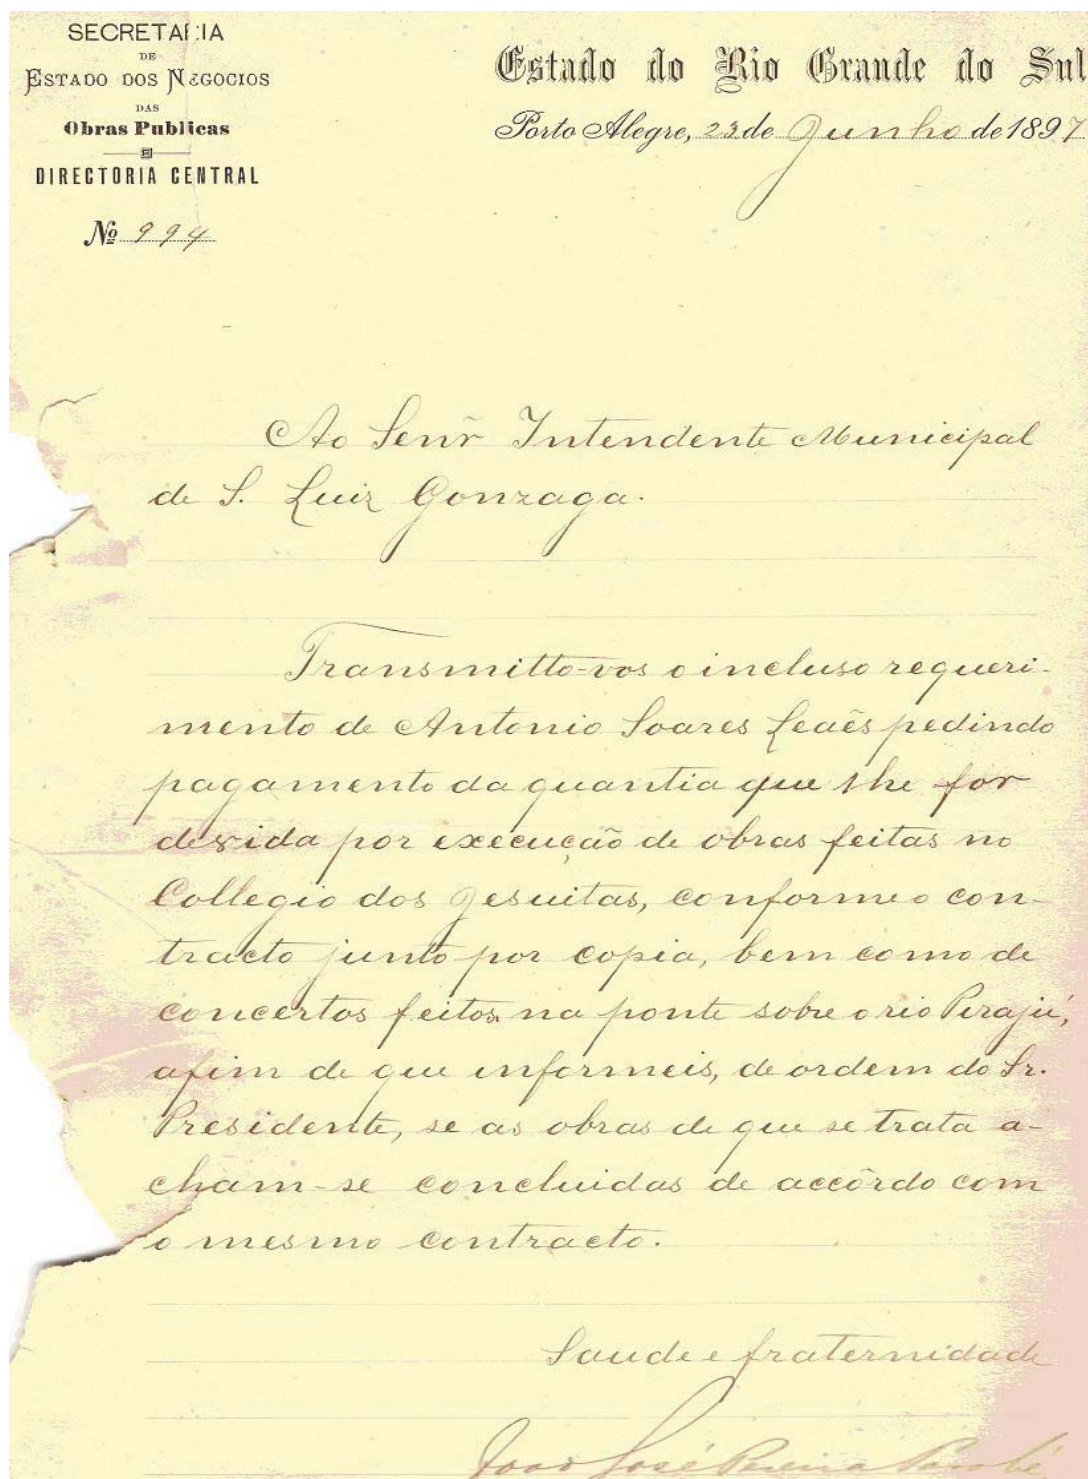 SECRETARIA
DE
ESTADO DOS NEGOCIOS
DAS
Obras Publicas
DIRECTORIA CENTRAL
Nº 994
Estado do Rio Grande do Sul
Porto Alegre, 23 de Junho de 1897
Ao Senr̃ Intendente Municipal
de S. Luiz Gonzaga.
Transmitto-vos o incluso requeri-
mento de Antonio Soares Leaẽs pedindo
pagamento da quantia que lhe for
devida por execução de obras feitas no
Collegio dos Jesuitas, conforme o con-
tracto junto por copia, bem como de
concertos feitos na ponte sobre o rio Pirajú,
afim de que informeis, de ordem do Sr.
Presidente, se as obras de que se trata a-
cham-se concluidas de accôrdo com
o mesmo contracto.
Saude e fraternidade
João José Pereira Parobé